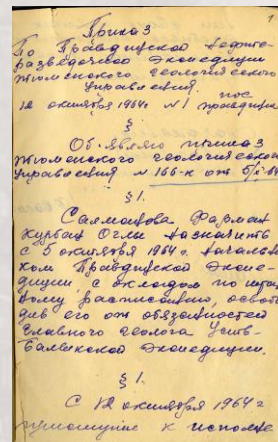 1
Приказ
По Правдинской нефте-
разведочной экспедиции
Тюменского геологического
управления.
пос
12 октября 1964г. №1 Правдинск
§
Объявляю приказ
Тюменского геологического
управления № 166-к от 5/X-64
§ 1.
Салманова Фарман
Курбан Оглы назначить
с 5 октября 1964г. начальни-
ком Правдинской экспе-
диции, с окладом по штат
ному расписанию, освобо
див его от обязанностей
главного геолога Усть-
Балыкской экспедиции.
§ 1.
С 12 октября 1964г
приступил к исполне